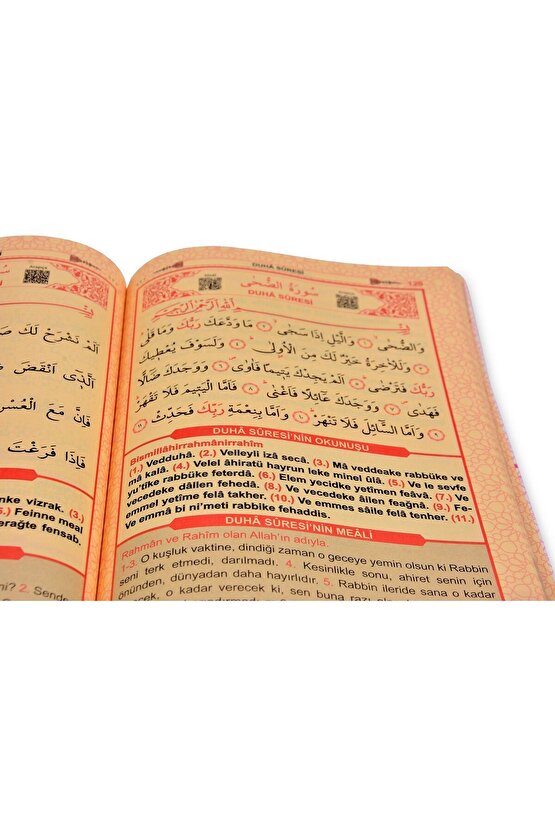 DUHÂ SÛRESİ
128
سُورَةُ الضُّحٰى
DUHÂ SÛRESİ
وَالضُّحٰى ﴿١﴾ وَالَّيْلِ اِذَا سَجٰى ﴿٢﴾ مَا وَدَّعَكَ رَبُّكَ وَمَا قَلٰى
﴿٣﴾ وَلَلْاٰخِرَةُ خَيْرٌ لَكَ مِنَ الْاُولٰى ﴿٤﴾ وَلَسَوْفَ يُعْطٖيكَ
رَبُّكَ فَتَرْضٰى ﴿٥﴾ اَلَمْ يَجِدْكَ يَتٖيمًا فَاٰوٰى ﴿٦﴾ وَوَجَدَكَ ضَالًّا
فَهَدٰى ﴿٧﴾ وَوَجَدَكَ عَائِلًا فَاَغْنٰى ﴿٨﴾ فَاَمَّا الْيَتٖيمَ فَلَا تَقْهَرْ
﴿٩﴾ وَاَمَّا السَّائِلَ فَلَا تَنْهَرْ ﴿١٠﴾ وَاَمَّا بِنِعْمَةِ رَبِّكَ فَحَدِّثْ ﴿١١﴾
DUHÂ SÛRESİ'NİN OKUNUŞU
Bismillâhirrahmânirrahîm
(1.) Vedduhâ. (2.) Velleyli izâ secâ. (3.) Mâ veddeake rabbüke ve
mâ kalâ. (4.) Velel âhiratü hayrun leke minel ûlâ. (5.) Ve le sevfe
yu'tîke rabbüke feterdâ. (6.) Elem yecidke yetîmen feâvâ. (7.) Ve
vecedeke dâllen fehedâ. (8.) Ve vecedeke âilen feağnâ. (9.) Fe-
emmel yetîme felâ takher. (10.) Ve emmes sâile felâ tenher. (11.)
Ve emmâ bi ni'meti rabbike fehaddis.
DUHÂ SÛRESİ'NİN MEÂLİ
Rahmân ve Rahîm olan Allah'ın adıyla.
1-3. O kuşluk vaktine, dindiği zaman o geceye yemin olsun ki Rabbin
seni terk etmedi, darılmadı. 4. Kesinlikle sonu, ahiret senin için
önünden, dünyadan daha hayırlıdır. 5. Rabbin ileride sana o kadar
verecek ki, sen buna razı
اَلَمْ نَشْرَحْ لَكَ
اَلَّذٖى اَنْقَضَ
فَاِنَّ مَعَ الْعُسْرِ
فَاِذَا فَرَغْتَ
nke vizrak. (3.)
5.) Feinne meal
erağte fensab.
ni? 2. Sende